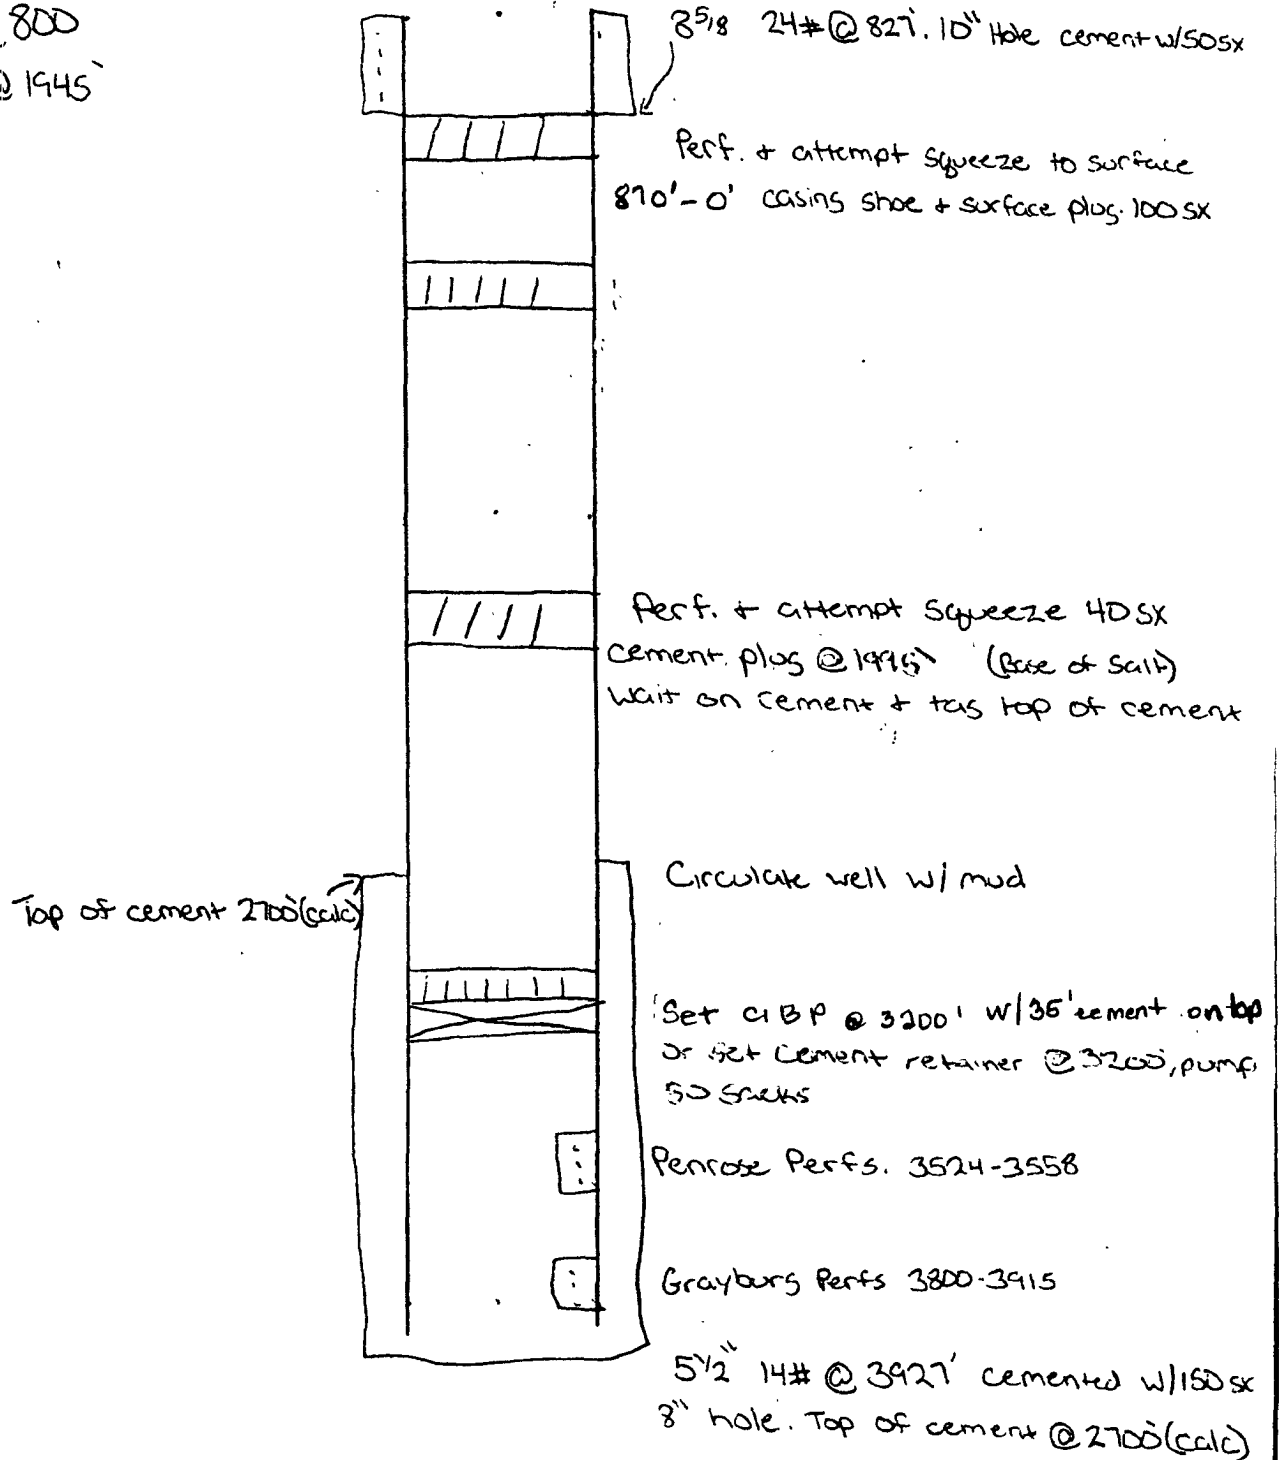 800
@ 1945'
8 5/8 24# @ 827'. 10" Hole cement w/50sx
Perf. + attempt squeeze to surface
870'-0' casing shoe + surface plug. 100 sx
Perf. + attempt squeeze 40 sx
cement plug @ 1995' (Base of Salt)
wait on cement + tag top of cement
Circulate well w/ mud
Top of cement 2700'(calc)
Set CIBP @ 3200' w/35' cement on top
or set cement retainer @ 3200', pump
50 sacks
Penrose Perfs. 3524-3558
Grayburg Perfs 3800-3915
5 1/2" 14# @ 3927' cemented w/150 sx
8" hole. Top of cement @ 2700'(calc)